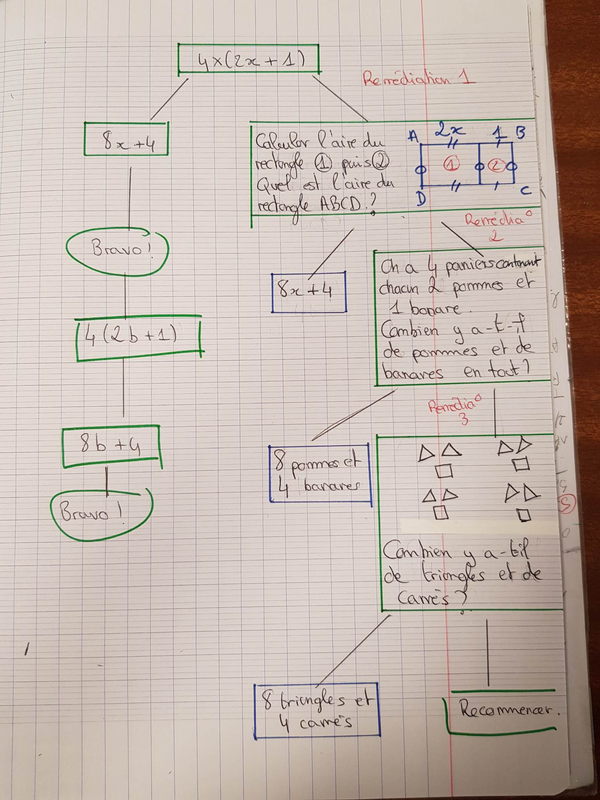 4×(2x+1)
Remédiation 1
8x+4
Calculer l'aire du
rectangle ① puis ②
Quel est l'aire du
rectangle ABCD?
A 2x 1 B
① ②
D C
Bravo!
Remédia°
2
8x+4
On a 4 paniers contenant
chacun 2 pommes et
1 banane.
Combien y a-t-il
de pommes et de
bananes en tout?
4(2b+1)
Remédia°
3
8b+4
8 pommes et
4 bananes
Bravo!
Combien y a-t-il
de triangles et de
carrés?
8 triangles et
4 carrés
Recommencer.